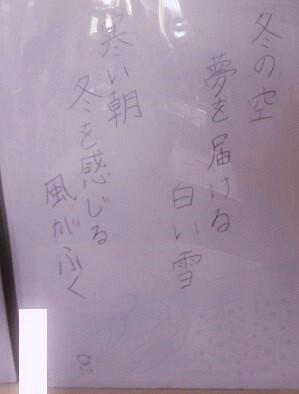 冬の空
夢を届ける
白い雪
寒い朝
冬を感じる
風がふく